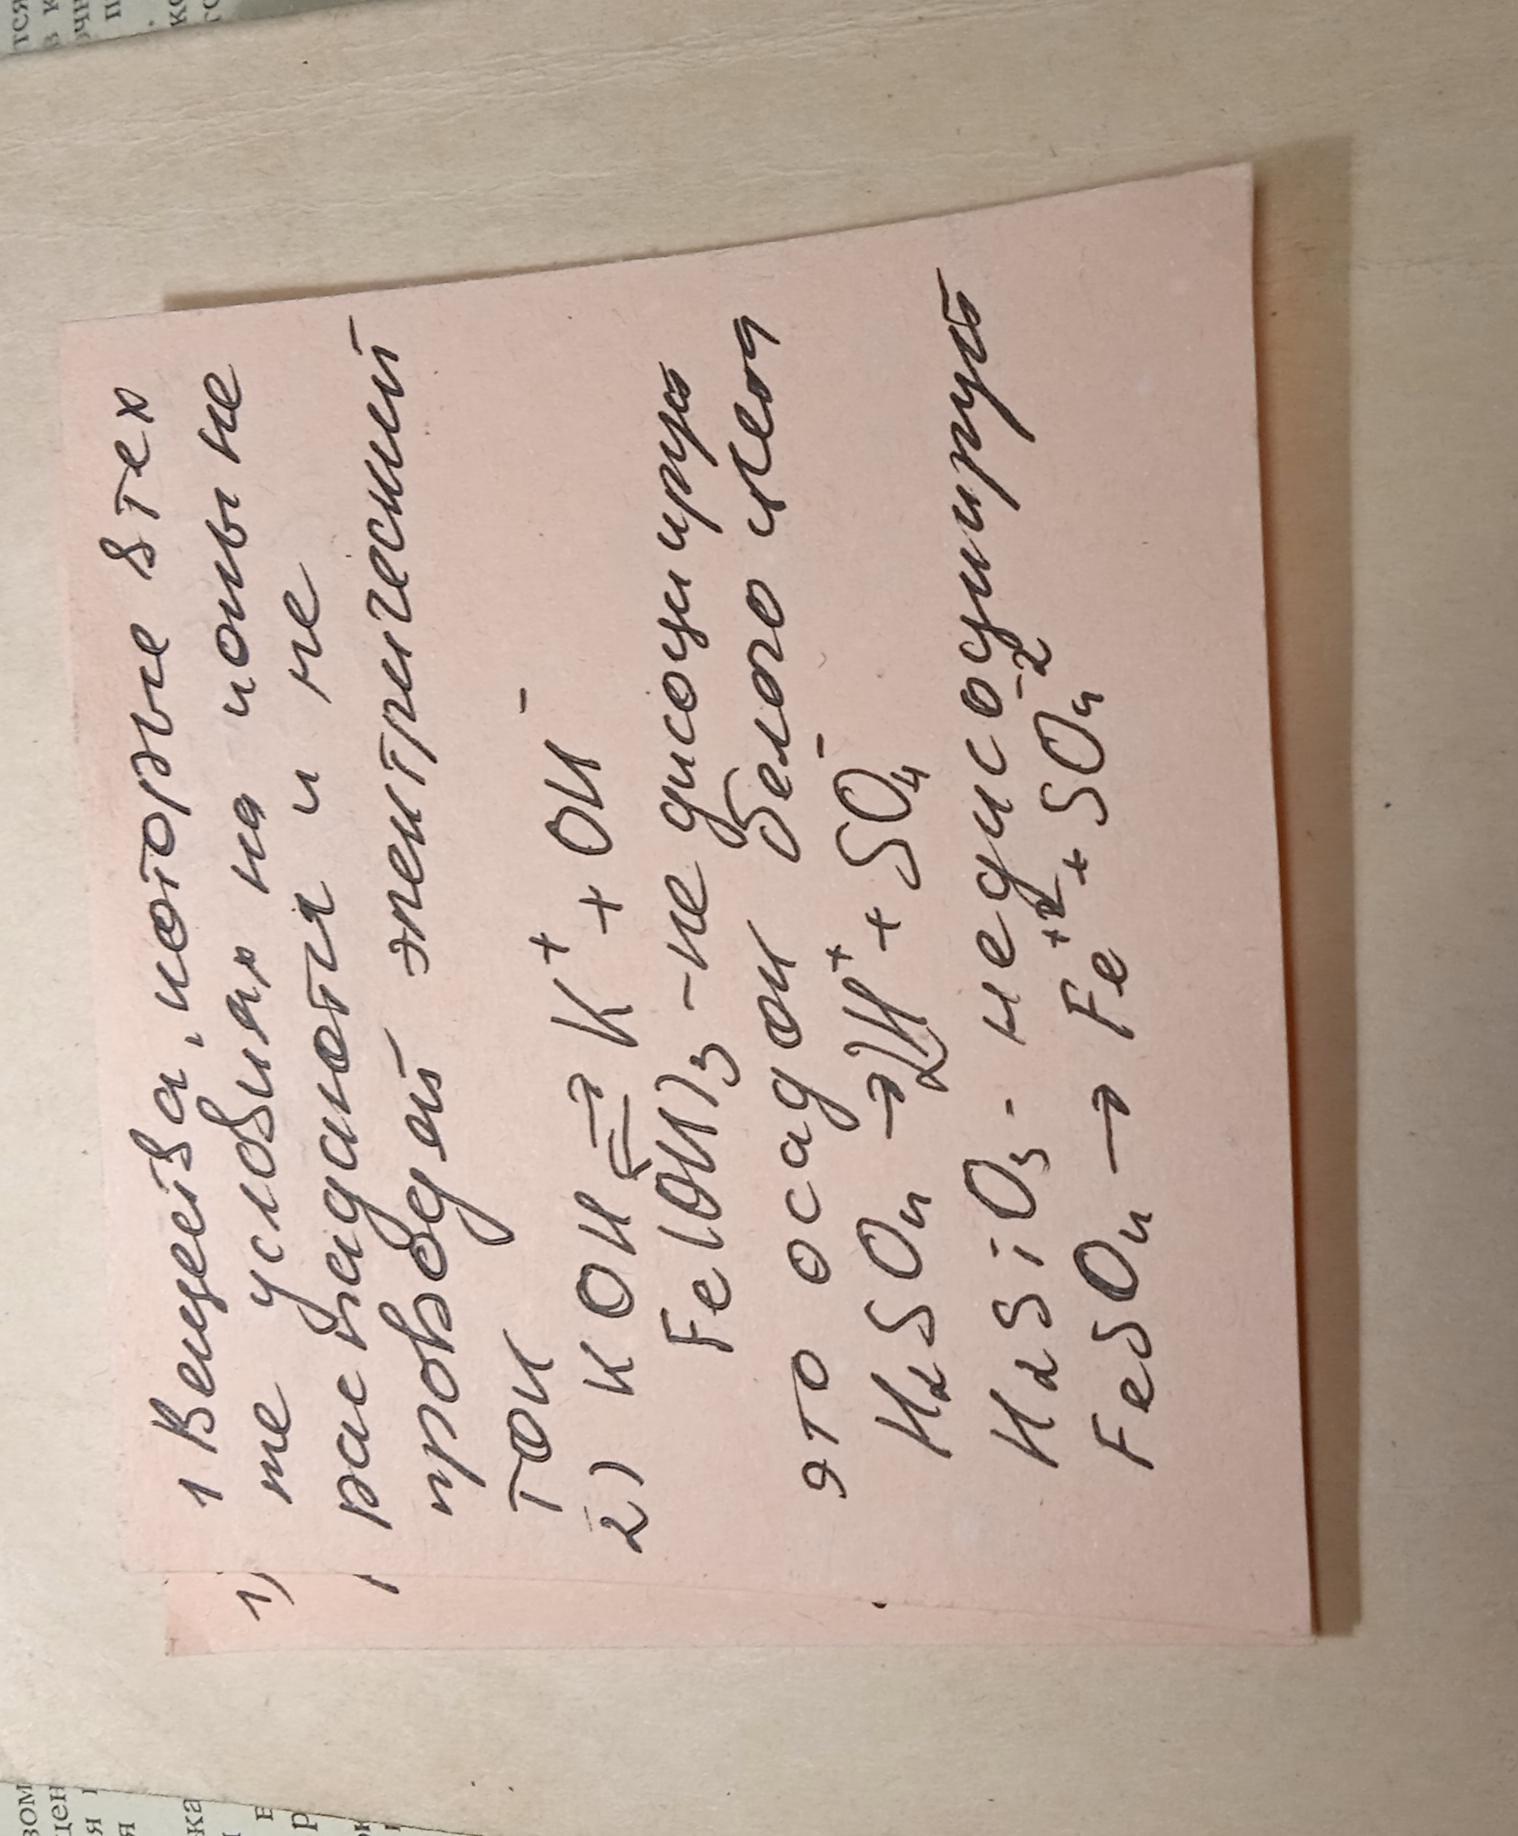 1 Вещества, которые в тех
1) же условиях на ионы не
распадаются и не
проводят электрический
ток
2) KOH ⇄ K⁺ + OH⁻
Fe(OH)₃ - не дисоцииру
это осадок белого цвета
H₂SO₄ → 2H⁺ + SO₄⁻
H₂SiO₃ - не дисоциирует
FeSO₄ → Fe⁺² + SO₄⁻²